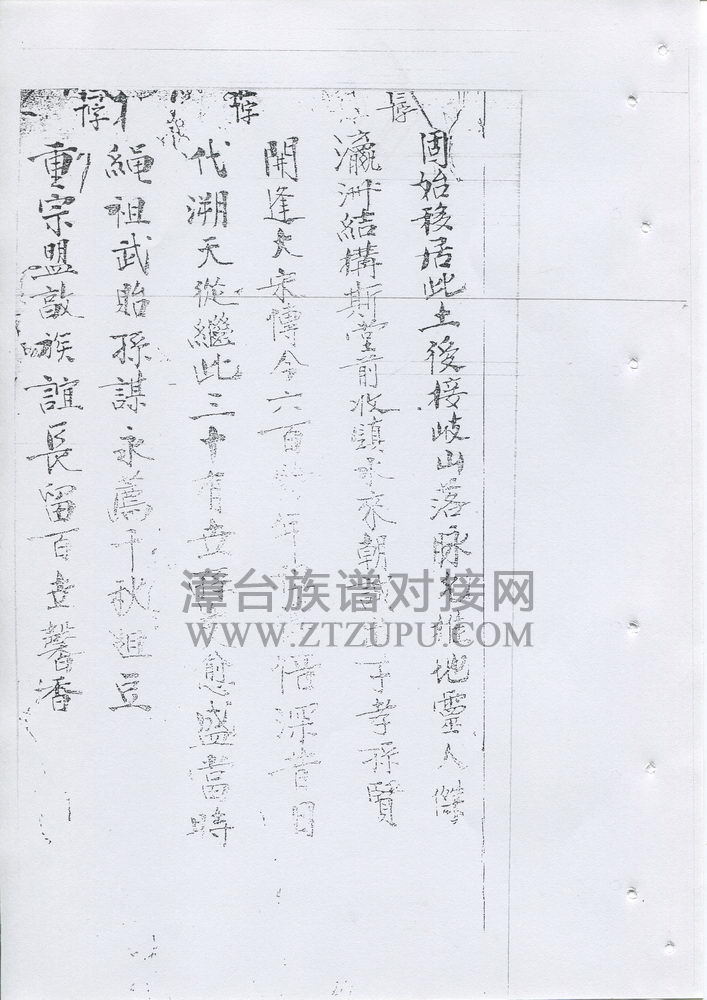 固始移居此土後接岐山落脉 地靈人傑
瀛洲結構斯堂前收鎮水來朝 子孝孫賢
開逢大宋傳今六百 年 倍深昔日
代溯天從繼此三十有 愈盛當時
繩祖武貽孫謀永薦千秋俎豆
重宗盟敦族誼長留百世馨香
漳台族谱对接网
WWW.ZTZUPU.COM